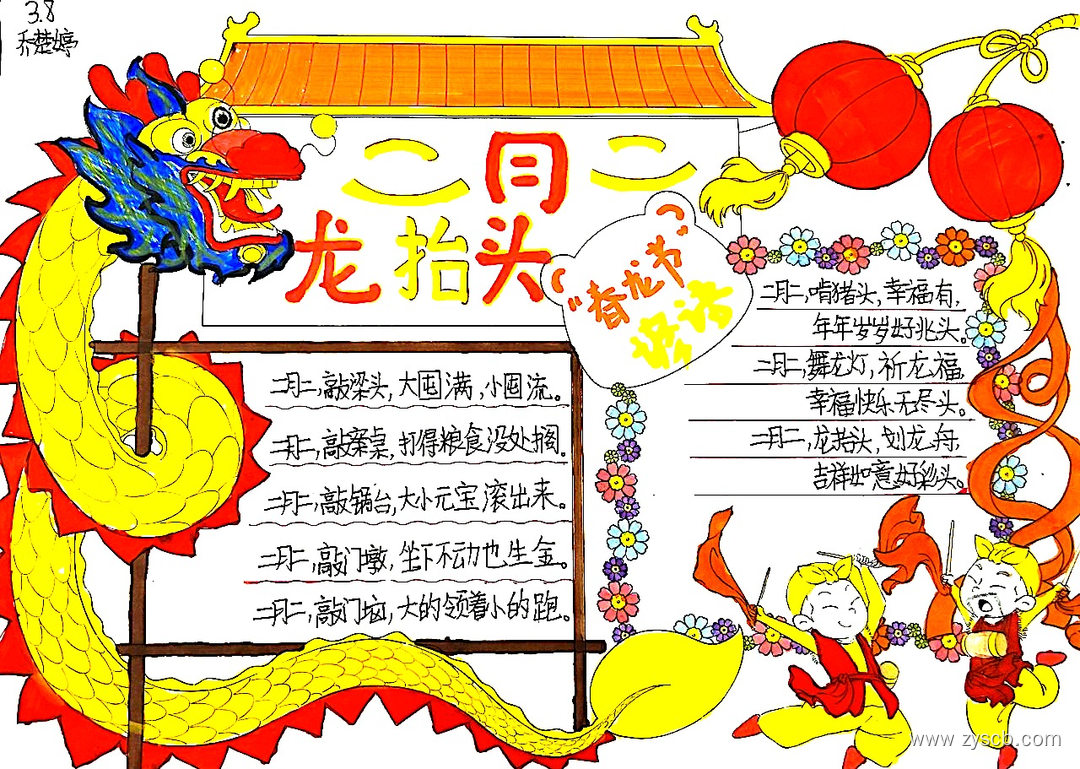 3.8
乔楚婷
二月二
龙抬头
“春龙节”
俗语
二月二,敲梁头,大囤满,小囤流。
二月二,敲寨桌,打得粮食没处搁。
二月二,敲锅台,大小元宝滚出来。
二月二,敲门墩,坐下不动也生金。
二月二,敲门垴,大的领着小的跑。
二月二,啃猪头,幸福有,
年年岁岁好兆头。
二月二,舞龙灯,祈龙福,
幸福快乐无尽头。
二月二,龙抬头,划龙舟,
吉祥如意好彩头。
www.zyscb.com